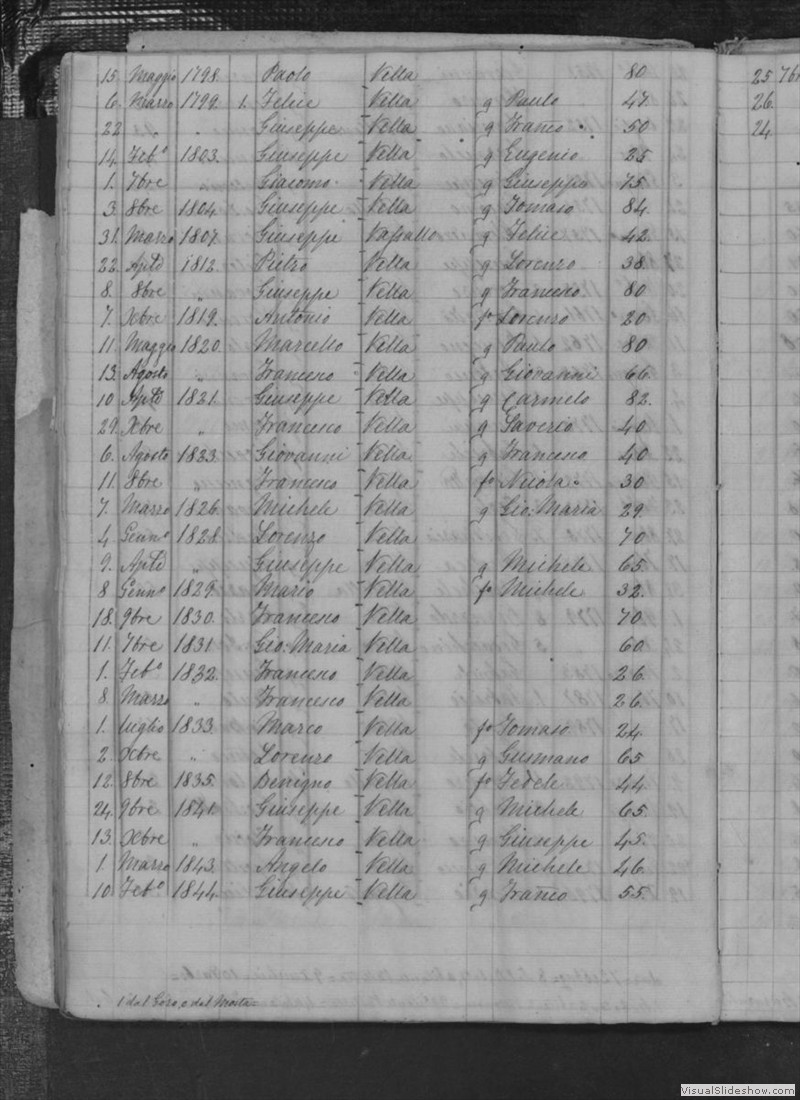 15. Maggio 1798. Paolo Vella 80
6. Marzo 1799. 1. Felice Vella g Paulo 47.
22 " " Giuseppe Vella g Franco. 50
14. Febo. 1803. Giuseppe Vella g Eugenio 25
1. 7bre " Giacomo Vella g Giuseppe 75
3. 8bre 1804. Giuseppe Vella g Tomaso 84.
31. Marzo 1807. Giuseppe Vassallo g Felice 42.
22. Aple 1812. Pietro Vella g Lorenzo 38.
8. 8bre " Giuseppe Vella g Francesco 80
7. Xbre 1819. Antonio Vella fo Lorenzo 20
11. Maggio 1820. Marcello Vella g Paulo 80
13. Agosto " Francesco Vella g Giovanni 66.
10 Aple 1821. Giuseppe Vella g Carmelo 82.
29. Xbre " Francesco Vella g Saverio 40
6. Agosto 1823. Giovanni Vella g Francesco 40
11. 8bre Francesco Vella fo Nicola. 30
7. Marzo 1826. Michele Vella g Gio: Maria 29.
4 Genno 1828. Lorenzo Vella 70
9. Aple " Giuseppe Vella g Michele 65.
8 Genno 1829. Mario Vella fo Michele 32.
18. 9bre 1830. Francesco Vella 70.
11. 7bre 1831 Gio: Maria Vella 60.
1. Febo. 1832. Francesco Vella 26.
8. Marzo " Francesco Vella 26.
1. Luglio 1833. Marco Vella fo Tomaso 24.
2. Xbre " Lorenzo Vella g Gusmano 65
12. 8bre 1835. Benigno Vella fo Fedele 44.
24. 9bre 1841. Giuseppe Vella g Michele 65.
13. Xbre " Francesco Vella g Giuseppe 45.
1. Marzo 1843. Angelo Vella g Michele 46.
10. Febo. 1844. Giuseppe Vella g Franco 55.
1 dal Gozo, e dal Mosta
25 7br
26.
24.
VisualSlideshow.com